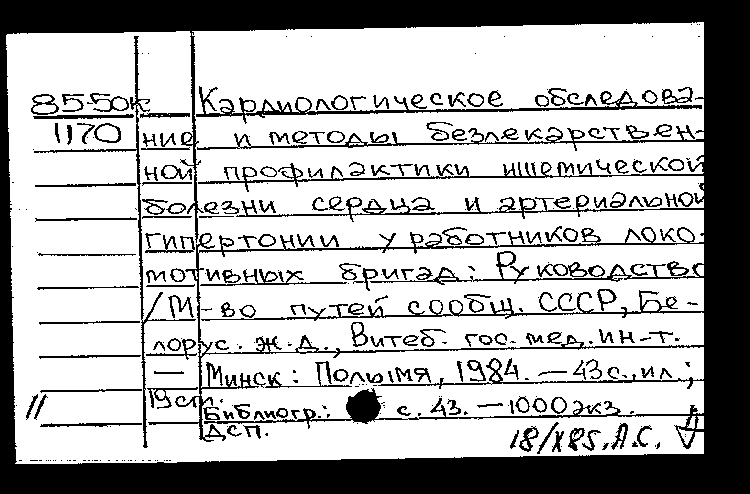 85-50к Кардиологическое обследова-
1170 ние и методы безлекарствен-
ной профилактики ишемической
болезни сердца и артериальной
гипертонии у работников локо-
мотивных бригад: Руководство
/М-во путей сообщ. СССР, Бе-
лорус. ж.д., Витеб. гос. мед. ин-т.
— Минск: Полымя, 1984. — 43 с., ил.;
19 см.
Библиогр.: с. 43. — 1000 экз.
ДСП.
18/X85. А.С.